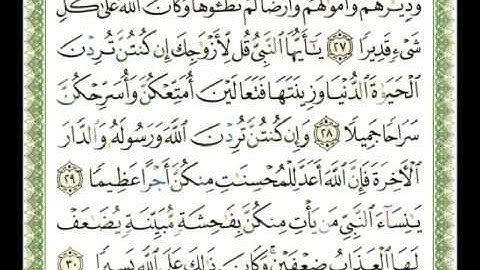 وَدِيَـٰرَهُمْ وَأَمْوَٰلَهُمْ وَأَرْضًا لَّمْ تَطَـُٔوهَا وَكَانَ ٱللَّهُ عَلَىٰ كُلِّ
شَىْءٍ قَدِيرًا ٢٧ يَـٰٓأَيُّهَا ٱلنَّبِىُّ قُل لِّأَزْوَٰجِكَ إِن كُنتُنَّ تُرِدْنَ
ٱلْحَيَوٰةَ ٱلدُّنْيَا وَزِينَتَهَا فَتَعَالَيْنَ أُمَتِّعْكُنَّ وَأُسَرِّحْكُنَّ
سَرَاحًا جَمِيلًا ٢٨ وَإِن كُنتُنَّ تُرِدْنَ ٱللَّهَ وَرَسُولَهُۥ وَٱلدَّارَ
ٱلْـَٔاخِرَةَ فَإِنَّ ٱللَّهَ أَعَدَّ لِلْمُحْسِنَـٰتِ مِنكُنَّ أَجْرًا عَظِيمًا ٢٩
يَـٰنِسَآءَ ٱلنَّبِىِّ مَن يَأْتِ مِنكُنَّ بِفَـٰحِشَةٍ مُّبَيِّنَةٍ يُضَـٰعَفْ
لَهَا ٱلْعَذَابُ ضِعْفَيْنِ ۚ وَكَانَ ذَٰلِكَ عَلَى ٱللَّهِ يَسِيرًا ٣٠